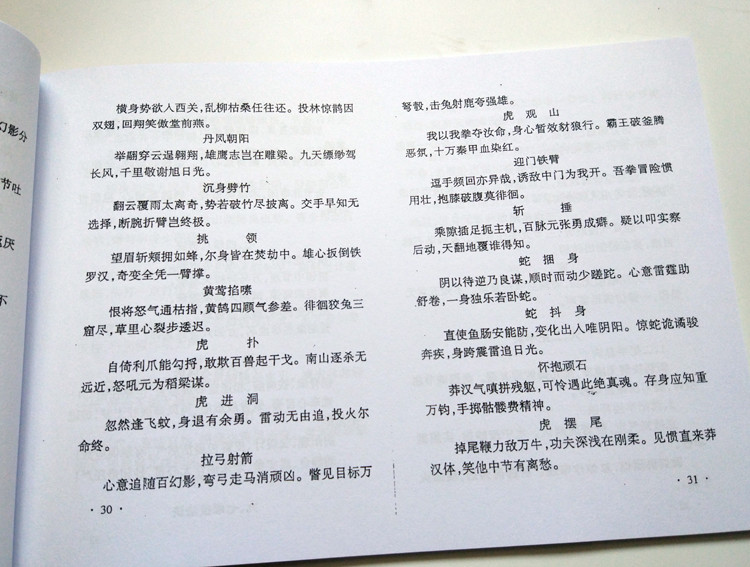 幻影分
节吐
厌
不
横身势欲入西关，乱柳枯桑任往还。投林惊鹊因
双翅，回翔笑傲堂前燕。
丹凤朝阳
举翮穿云逞翱翔，雄鹰志岂在雕梁。九天缥缈驾
长风，千里敬谢旭日光。
沉身劈竹
翻云覆雨太离奇，势若破竹尽披离。交手早知无
选择，断腕折臂岂终极。
挑 领
望眉斩颊拥如蜂，尔身皆在焚劫中。雄心扳倒铁
罗汉，奇变全凭一臂撑。
黄莺掐嗉
恨将怒气通枯指，黄鹄四顾气参差。徘徊狡兔三
窟尽，草里心裂步逶迟。
虎 扑
自倚利爪能勾捋，敢欺百兽起干戈。南山逐杀无
远近，怒吼元为稻梁谋。
虎 进 洞
忽然逢飞蚊，身退有余勇。雷动无由追，投火尔
命终。
拉弓射箭
心意追随百幻影，弯弓走马消顽凶。瞥见目标万
· 30 ·
弩彀，击兔射鹿夸强雄。
虎 观 山
我以我拳夺汝命，身心暂效豺狼行。霸王破釜腾
恶氛，十万秦甲血染红。
迎门铁臂
逗手频回亦异哉，诱敌中门为我开。吾拳冒险惯
用壮，抱膝破腹莫徘徊。
斩 捶
乘隙插足扼主机，百脉元张勇成癖。疑以叩实察
后动，天翻地覆谁得知。
蛇 捆 身
阴以待逆乃良谋，顺时而动少蹉跎。心意霆霆助
舒卷，一身独乐若卧蛇。
蛇 抖 身
直使鱼肠安能防，变化出人唯阴阳。惊蛇诡谲骏
奔疾，身跨震雷追日光。
怀抱顽石
莽汉气嗔拼残躯，可怜遇此绝真魂。存身应知重
万钧，手掷骷髅费精神。
虎 摆 尾
掉尾鞭力敌万牛，功夫深浅在刚柔。见惯直来莽
汉体，笑他中节有离愁。
· 31 ·